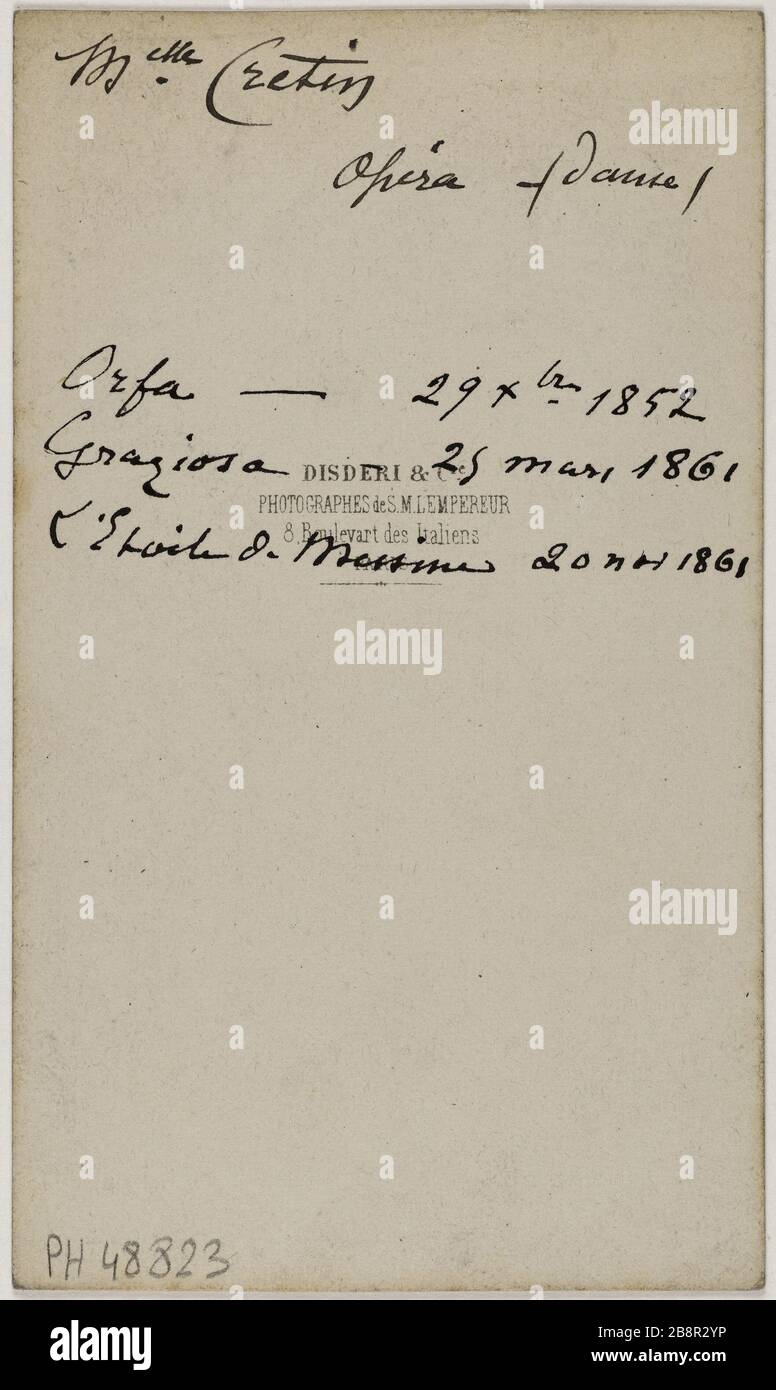 Melle Cretin
Opéra - (Danse)
Orfa — 29 xbre 1852
Graziosa — 25 mars 1861
DISDERI & Cie
PHOTOGRAPHES de S.M. L'EMPEREUR
8, Boulevart des Italiens
L'Etoile de Messine 20 nov 1861
PH 48823
alamy
Image ID: 2B8R2YP
www.alamy.com